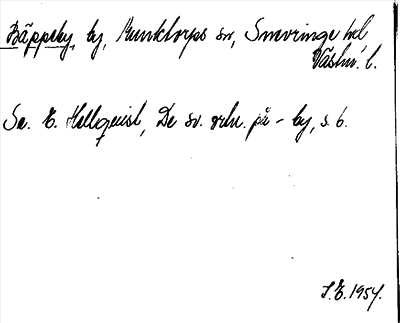 Bäppeby, by, Munktorps sn, Snevringe hd
Västm. l.
Se E. Hellquist, De sv. ortn. på - by, s. 6.
S.E. 1954.